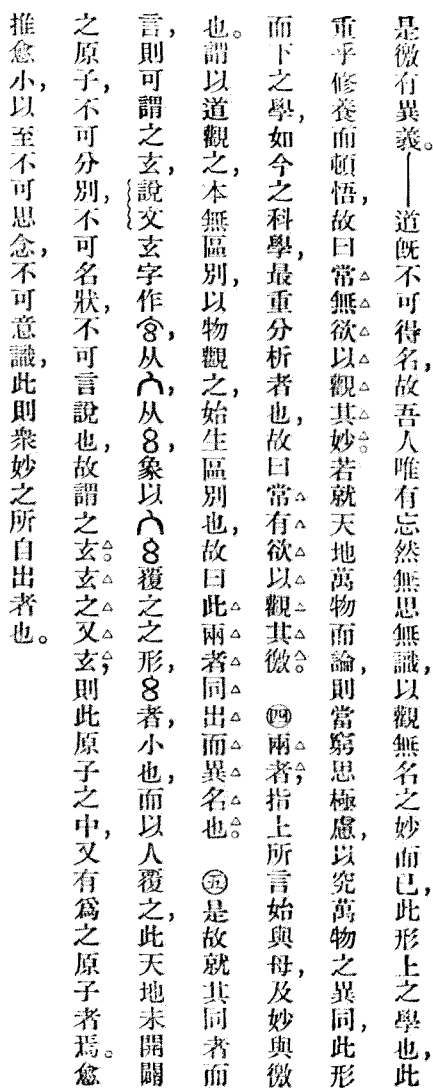 是徼有異義。——道旣不可得名，故吾人唯有忘然無思無識，以觀無名之妙而已，此形上之學也，此
重乎修養而頓悟，故曰常無欲以觀其妙。若就天地萬物而論，則當窮思極慮，以究萬物之異同，此形
而下之學，如今之科學，最重分析者也，故曰常有欲以觀其徼。㊃兩者，指上所言始與母，及妙與徼
也。謂以道觀之，本無區別，以物觀之，始生區別也，故曰此兩者同出而異名也。㊄是故就其同者而
言，則可謂之玄，說文玄字作，从，从，象以覆之之形，者，小也，而以人覆之，此天地未開闢
之原子，不可分別，不可名狀，不可言說也，故謂之玄。玄之又玄，則此原子之中，又有爲之原子者焉。愈
推愈小，以至不可思念，不可意識，此則衆妙之所自出者也。